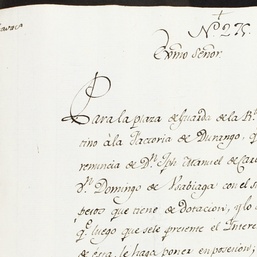 Nº 275.
Exmo Señor.
Para la plaza de Guarda de la Rˡ
tino à la Factoria de Durango, q
renuncia de Dⁿ Jph Manuel de
Dⁿ Domingo de Vsabiaga con el s
pesos que tiene de dotacion, y lo
qᵉ luego que sele presente el Intere
de ésta, le haga poner en posesion;